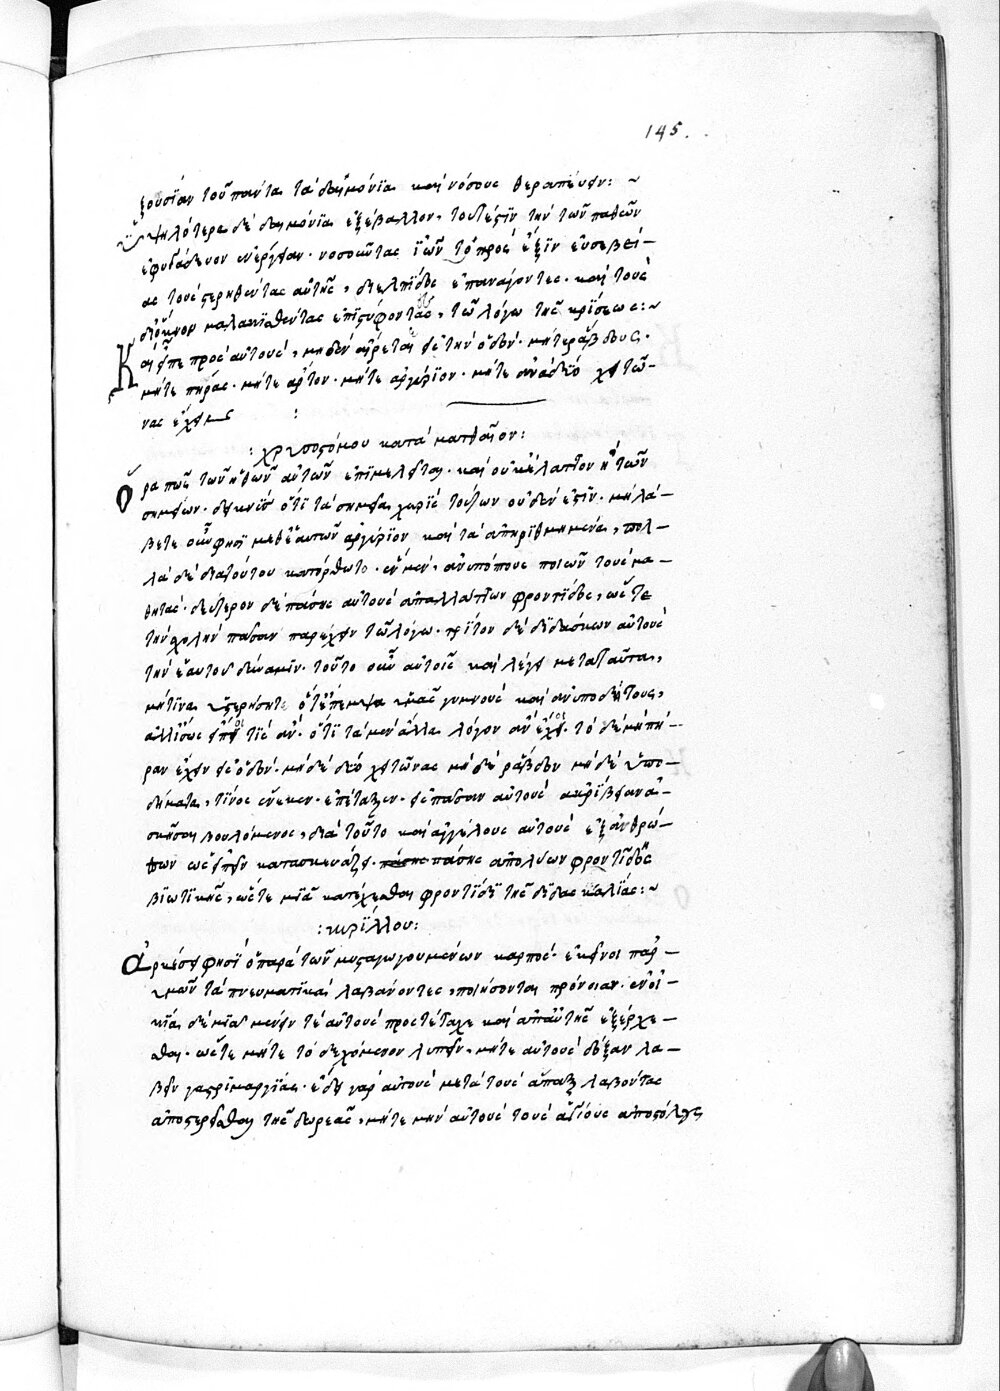 145.
ξουσίαν τοῦ πάντα τὰ δαιμόνια καὶ νόσους θεραπεύειν: ~
ὑψηλότερα δὲ δαιμόνια ἐξέβαλλον, τουτέστιν τὴν τῶν παθῶν
ἐφυγάδευον ἐνέργειαν. νοσοῦντας ἰῶν τὸ πρὸς ἕξιν εὐσεβεί-
ας τοὺς στερηθέντας αὐτῆς, δι ἐλπίδος ἐπανάγοντες. καὶ τοὺς
δι ὄκνον μαλακισθέντας ἐπιστύφοντας, τῷ λόγῳ τῆς κρίσεως: ~
Καὶ εἶπε πρὸς αὐτούς, μηδὲν αἴρεται εἰς τὴν ὁδόν. μήτε ῥάβδους.
μήτε πήρας. μήτε ἄρτον. μήτε ἀργύριον. μήτε ἀνὰ δύο χιτῶ-
νας ἔχειν
: χρυσοστόμου κατὰ ματθαῖον:
Ὅρα πῶς τῶν ἠθῶν αὐτῶν ἐπιμελεῖται. καὶ οὐκ ἔλαττον ἢ τῶν
σημείων. δεικνὺς ὅτι τὰ σημεῖα χωρὶς τούτων οὐδέν ἐστιν. μὴ λά-
βετε οὖν φησὶ μεθ ἑαυτῶν ἀργύριον καὶ τὰ ἀπηριθμημένα, πολ-
λὰ δὲ διὰ τούτου κατόρθωτο. ἓν μὲν, ἀνυπόπτους ποιῶν τοὺς μα-
θητάς. δεύτερον δὲ πάσης αὐτοὺς ἀπαλλάττων φροντίδος, ὥστε
τὴν σχολὴν πᾶσαν παρέχειν τῷ λόγῳ. τρίτον δὲ διδάσκων αὐτοὺς
τὴν ἑαυτοῦ δύναμιν. τοῦτο οὖν αὐτοῖς καὶ λέγει μετὰ ταῦτα,
μή τινος ὑστερήσητε ὅτ ἔπεμψα ὑμᾶς γυμνοὺς καὶ ἀνυποδήτους,
ἀλλ ἴσως εἴποι τις ἂν. ὅτι τὰ μὲν ἄλλα λόγον ἂν ἔχοι. τὸ δὲ μὴ πή-
ραν ἔχειν εἰς ὁδόν. μηδὲ δύο χιτῶνας μηδὲ ῥάβδον μηδὲ ὑπο-
δήματα, τίνος ἕνεκεν. ἐπέταξεν. εἰς πᾶσαν αὐτοὺς ἀκρίβειαν ἀ-
σκῆσαι βουλόμενος, διὰ τοῦτο καὶ ἀγγέλους αὐτοὺς ἐξ ἀνθρώ-
πων ὡς εἰπεῖν κατασκευάζει. πάσης πάσης ἀπολύων φροντίδος
βιωτικῆς, ὥστε μιᾷ κατέχεσθαι φροντίδι τῆς διδασκαλίας: ~
: κυρίλλου:
Ἀρκέσει φησὶ ὁ παρὰ τῶν μυσταγωγουμένων καρπός. ἐκεῖνοι παρ -
ὑμῶν τὰ πνευματικὰ λαβόντες, ποιήσονται πρόνοιαν. ἐν οἰ -
κίᾳ δὲ μιᾷ μένειν τὲ αὐτοὺς προστέταχε καὶ ἀπ αὐτῆς ἐξέρχε -
σθαι. ὥστε μήτε τὸ δεχόμενον λυπεῖν. μήτε αὐτοὺς δόξαν λα -
βεῖν γαστριμαργίας. ἔδει γὰρ αὐτοὺς μετὰ τοὺς ἅπαξ λαβόντας
ἀποστερεῖσθαι τῆς δωρεᾶς, μήτε μὴν αὐτοὺς τοὺς ἁγίους ἀποστόλους